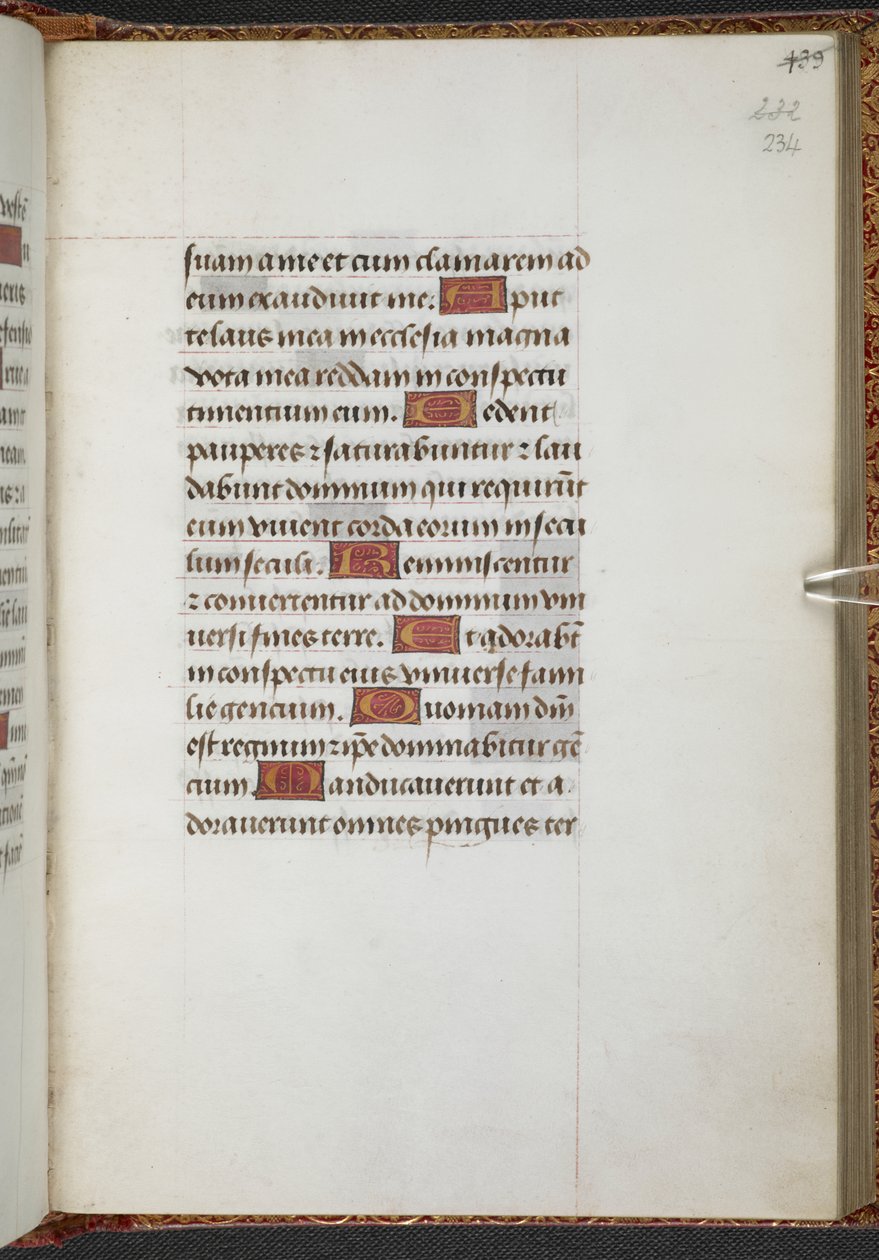 439
232
234
suam a me et cum clamarem ad
eum exaudiuit me: Aput
te laus mea in ecclesia magna
vota mea reddam in conspectu
timentium eum. Edent
pauperes ⁊ saturabuntur ⁊ lau
dabunt dominum qui requirūt
eum viuent corda eorum in secu
lum seculi: Reminiscentur
⁊ conuertentur ad dominum vni
uersi fines terre. Et adorabūt
in conspectu eius vniuerse fami
lie gencium. Quoniam dn̄i
est regnum ⁊ ip̄e dominabitur gē
cium. Manducauerunt et a
dorauerunt omnes pingues ter